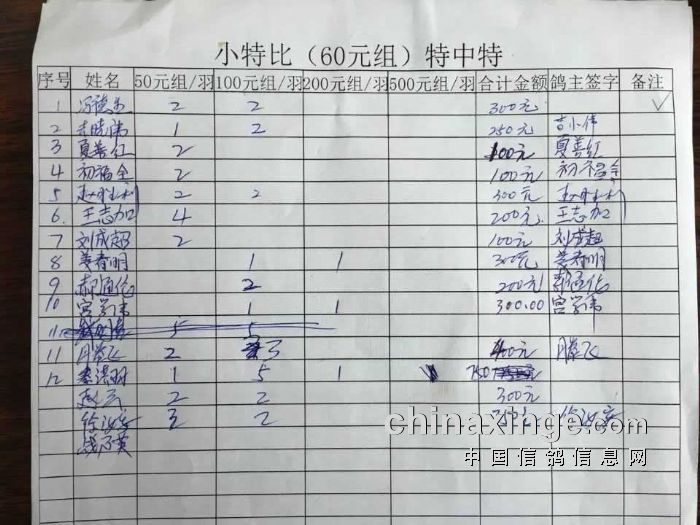 小特比（60元组）特中特
序号 姓名 50元组/羽 100元组/羽 200元组/羽 500元组/羽 合计金额 鸽主签字 备注
1 2 2 300元
2 1 2 250元 吉小伟
3 夏善红 2 100元 夏善红
4 初福全 2 100元 初福全
5 赵胜利 2 2 300元 赵胜利
6. 王志加 4 200元. 王志加
7 刘成超 2 100元 刘成超
8 姜春明 1 1 300元 姜春明
9 2 200元
10 宫学伟 1 1 300.00 宫学伟
11 5 5
11 月腾飞 2 3 400元 腾飞
12 1 5 1 750元
赵云 2 2 300元
3 2
chinaxinge.com
中国信鸽信息网